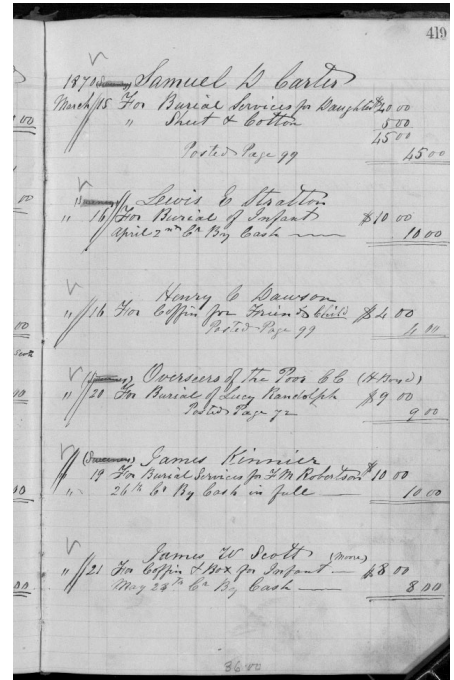 419
1870 Samuel D Carter
March 15 For Burial Services for Daughter $40.00
" Sheet & Cotton 5 00
45 00
Posted Page 99 45 00
Lewis E Stratton
" 16 For Burial of Infant $10 00
April 2nd Cr By Cash 10 00
Henry C Dawson
" 16 For Coffin for Friends Child $4 00
Posted Page 99 4 00
Overseers of the Poor CC
" 20 For Burial of Lucy Randolph $9 00
Posted Page 72 9 00
James Kinnier
" 19 For Burial Services for F M Robertson $10 00
" 26th Cr By Cash in full 10 00
James W Scott (More)
" 21 For Coffin & Box for Infant $8 00
May 28th Cr By Cash 8 00
36 00